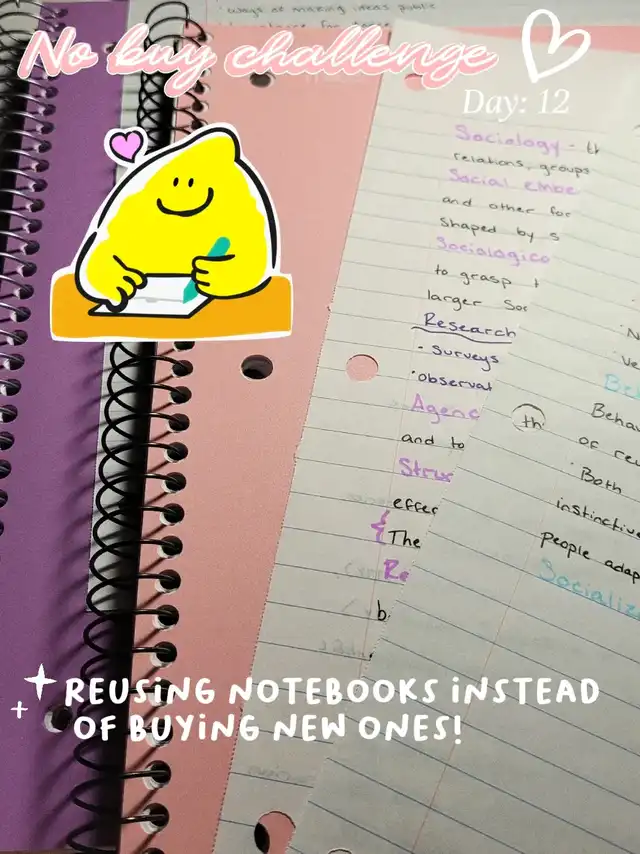 ways of making ideas public
No buy challenge
Day: 12
Sociology - th
relations, groups
Social embe
and other for
shaped by s
Sociologica
to grasp t
larger Soc
Research
• surveys
• observat
Agenc
and to
Struc
effec
{ The
Re
b
N
Ve
Be
Behav
th
of reu
• Both
instinctive
people adap
Socializ
REUSING NOTEBOOKS INSTEAD
OF BUYING NEW ONES!